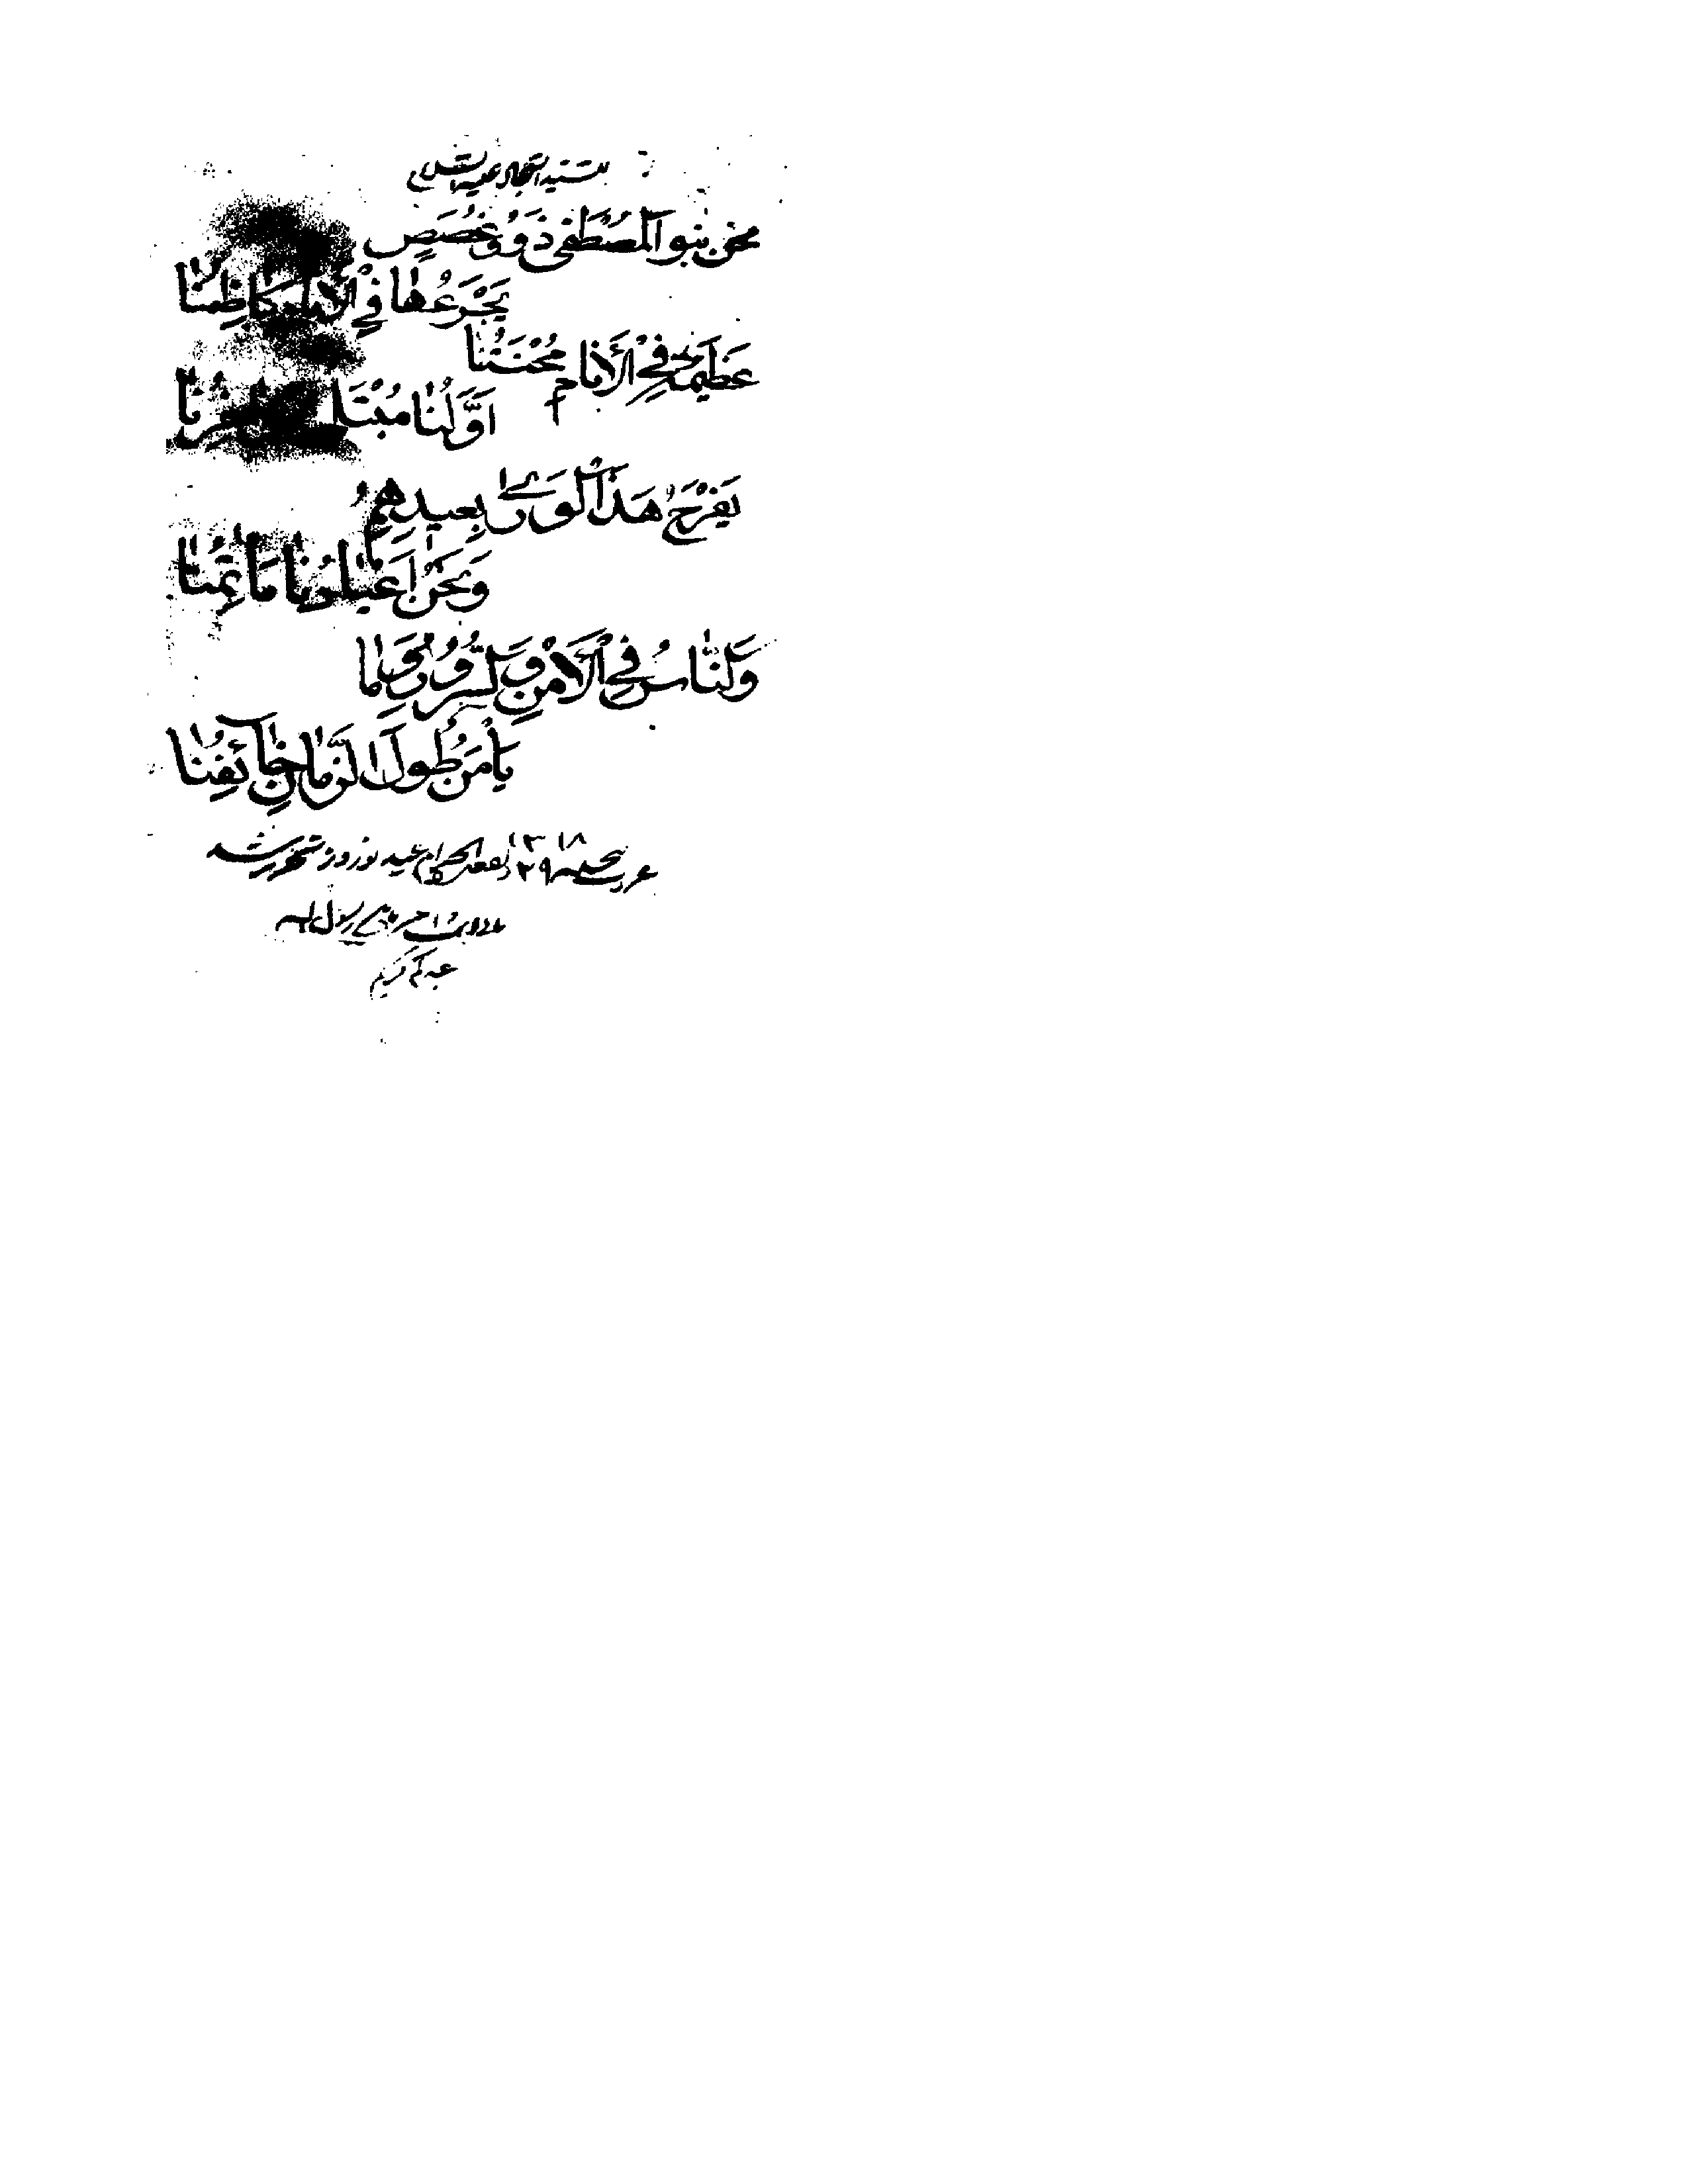 للسید السجاد علیه السلام
نحن بنو المصطفی ذَوُو غُصَصٍ
یَجْرَعُهٰا فِی الْأَنٰامِ کٰاظِمُنٰا
عَظِیمَةٌ فِی الْأَنٰامِ مِحْنَتُنٰا
اَوَّلُنٰا مُبْتَلیً وَآخِرُنٰا
یَفْرَحُ هَذَا الْوَریٰ بِعِیدِهِمُ
وَنَحْنُ اَعْیٰادُنٰا مَآتِمُنٰا
وَالنّٰاسُ فِی الْأَمْنِ وَالسُّرُورِ وَمٰا
یَأْمَنُ طُولَ الزَّمٰانِ خٰآئِفُنٰا
۱۳۱۸
۲۹ ذیقعده الحرام عید نوروز تحریر شد
رسول الله